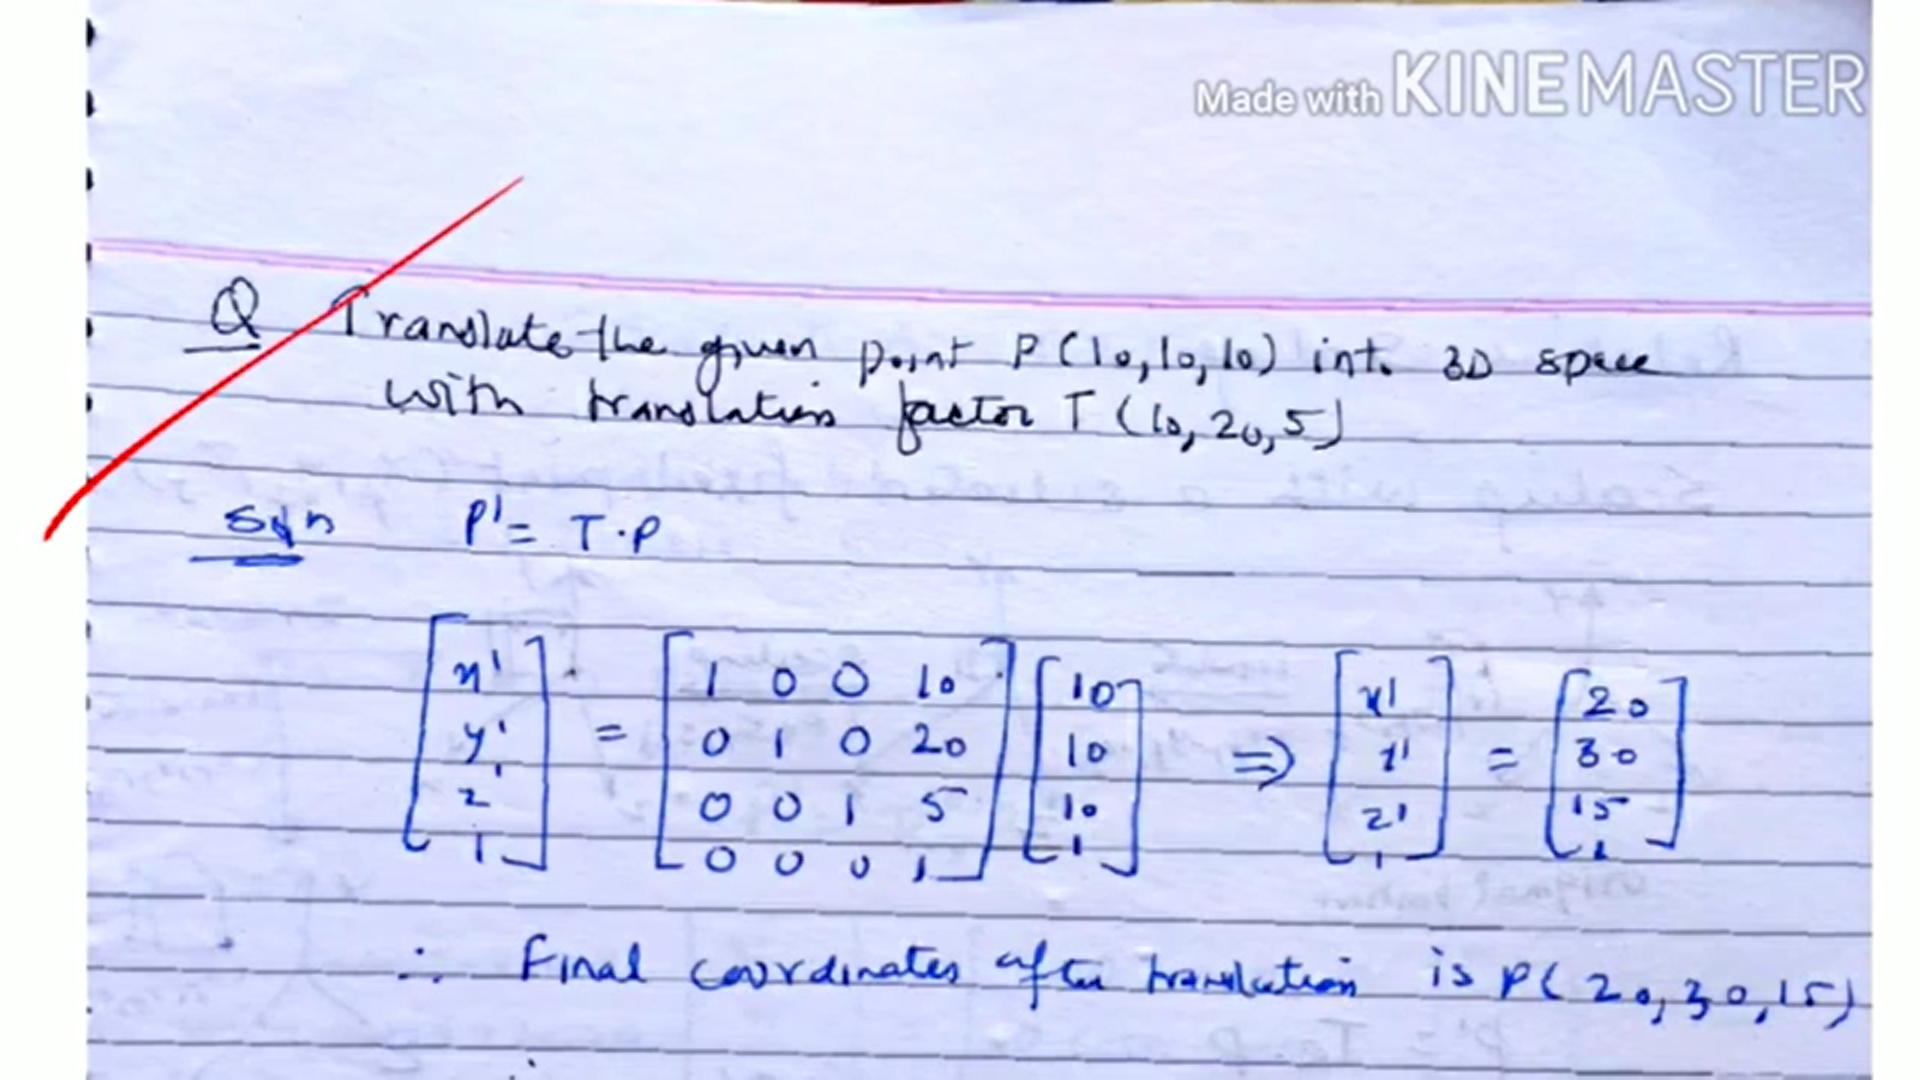 Made with KINEMASTER
Q Translate the given point P(10,10,10) into 3D space
with translation factor T(10,20,5)
Soln P' = T·P
[x' y' z' 1] = [1 0 0 10] [10] ⇒ [x'] = [20]
0 1 0 20 10 y' 30
0 0 1 5 10 z' 15
0 0 0 1 1 1 1
∴ Final coordinates after translation is P(20,30,15)